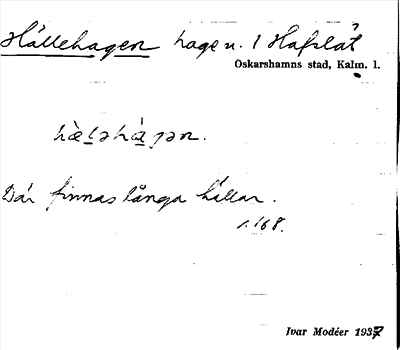 Hällehagen hage n. 1 Hafslät
Oskarshamns stad, Kalm. l.
hæ̀ləhàgən.
Där finnas långa hällar.
1:168.
Ivar Modéer 1937